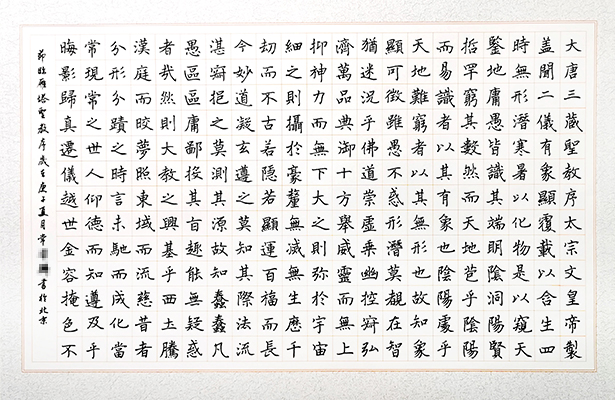 大唐三藏聖教序太宗文皇帝製
蓋聞二儀有象顯覆載以含生四
時無形潛寒暑以化物是以窺天
鑒地庸愚皆識其端明陰洞陽賢
哲罕窮其數然而天地苞乎陰陽
而易識者以其有象也陰陽處乎
天地難窮者以其無形也故知象
顯可徵雖愚不惑形潛莫覩在智
猶迷況乎佛道崇虛乘幽控寂弘
濟萬品典御十方舉威靈而無上
抑神力而無下大之則彌於宇宙
細之則攝於豪釐無滅無生歷千
劫而不古若隱若顯運百福而長
今妙道凝玄遵之莫知其際法流
湛寂挹之莫測其源故知蠢蠢凡
愚區區庸鄙投其旨趣能無疑惑
者哉然則大教之興基乎西土騰
漢庭而皎夢照東域而流慈昔者
分形分蹟之時言未馳而成化當
常現常之世人仰德而知遵及乎
晦影歸真遷儀越世金容掩色不
節臨雁塔聖教序歲在庚子夏月常書於北京